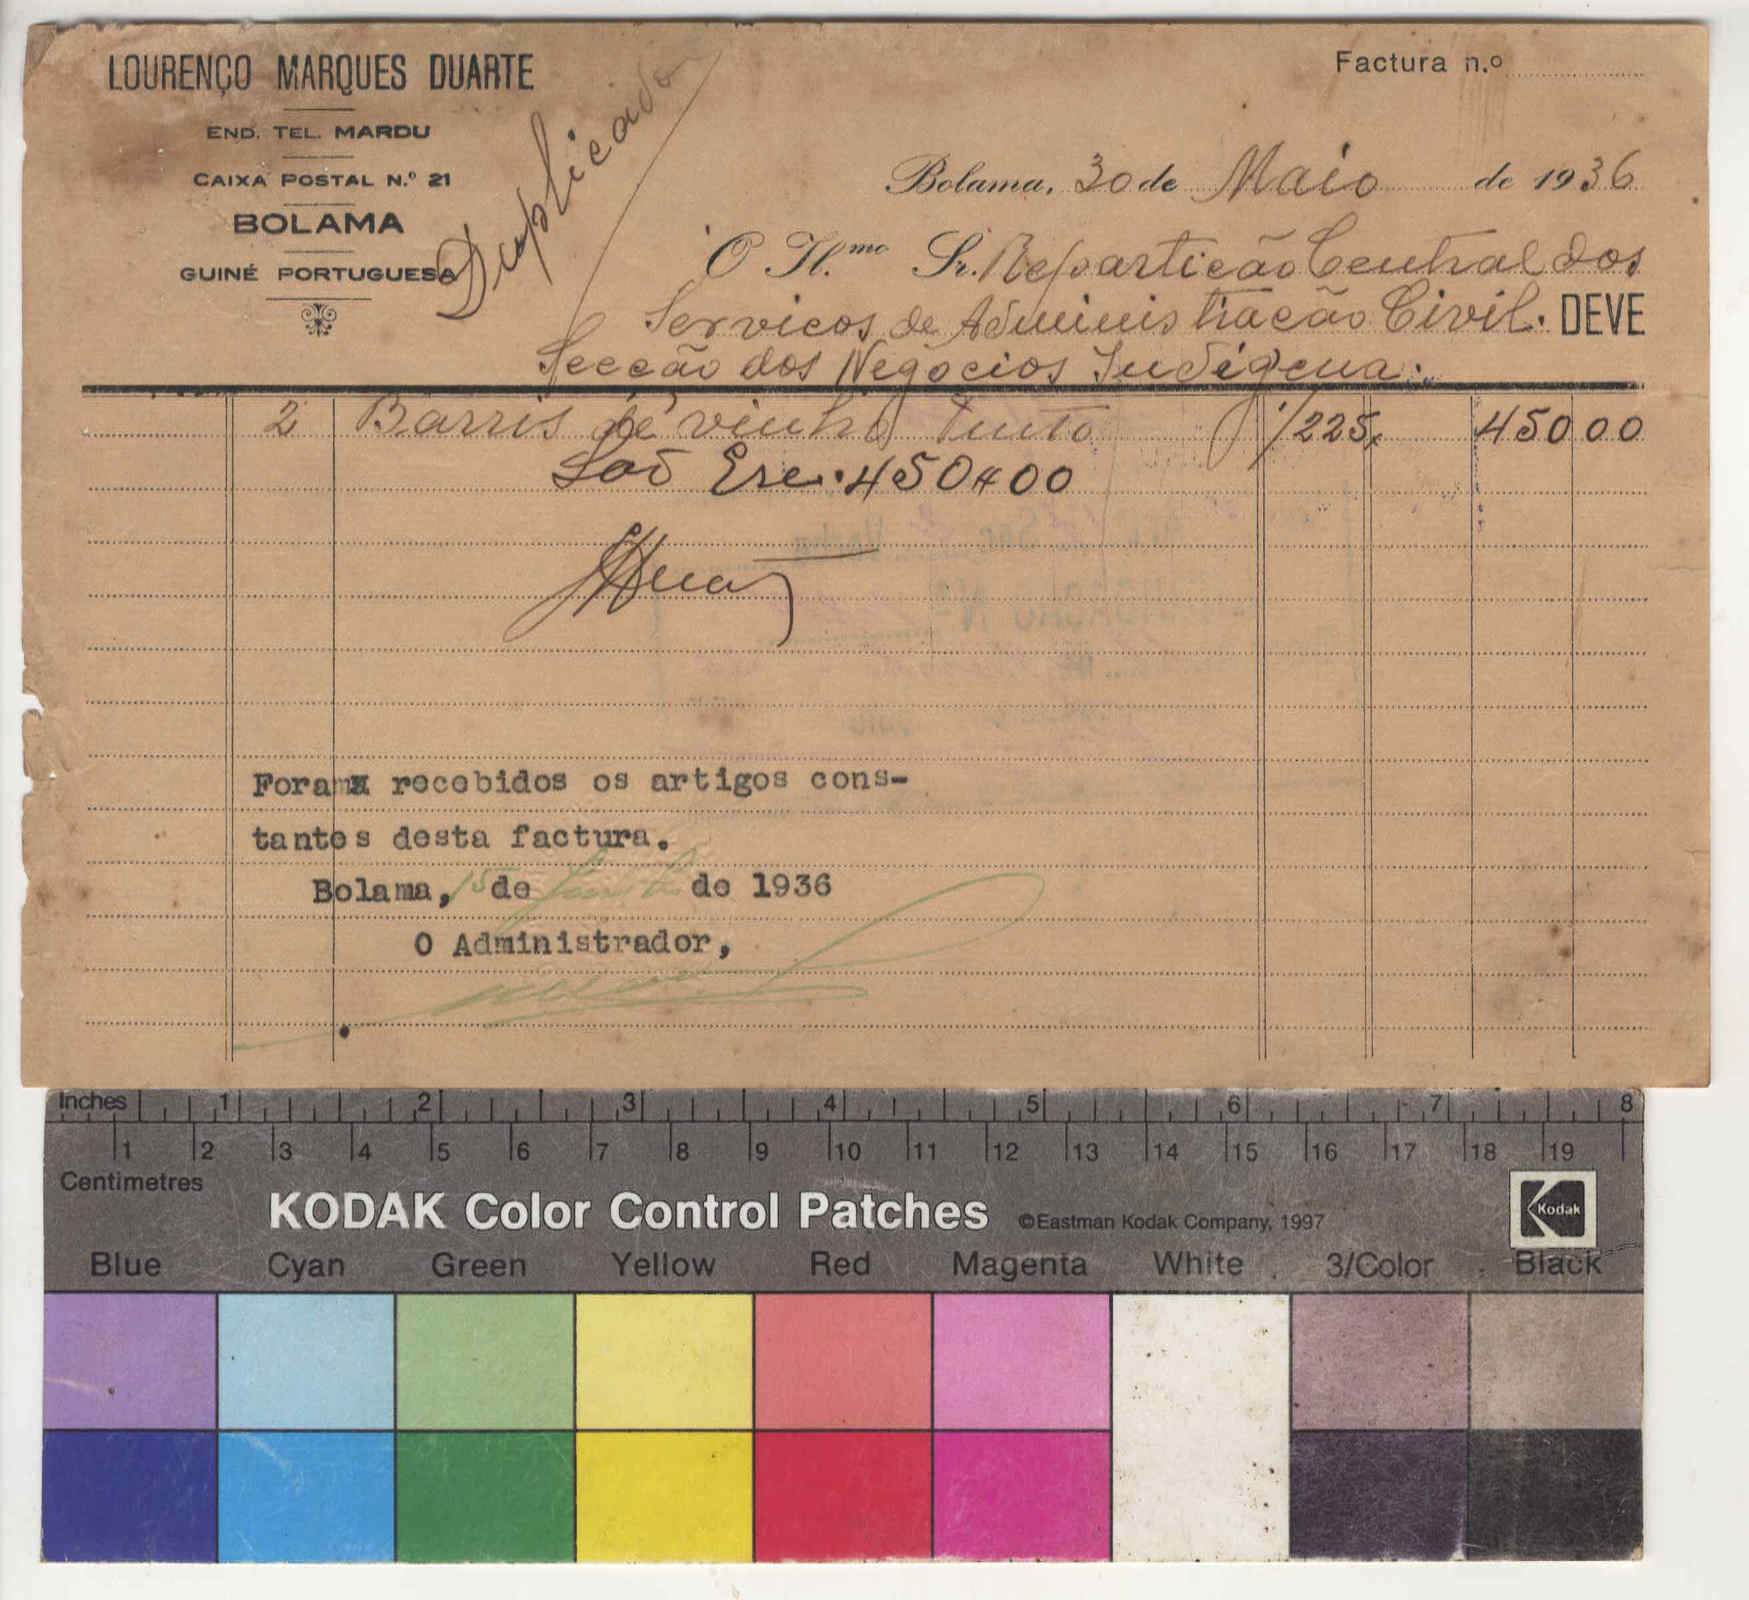 LOURENÇO MARQUES DUARTE
END. TEL. MARDU
CAIXA POSTAL N.º 21
BOLAMA
GUINÉ PORTUGUESA
Duplicado
Factura n.º
Bolama, 30 de Maio de 1936
O Il.mo Sr. Repartição Central dos
Servicos de Administração Civil. DEVE
Secção dos Negocios Indígena.
2 Barris de vinho Tinto 1/225, 450 00
São Esc. 450$00
Foram recebidos os artigos cons-
tantes desta factura.
Bolama, 15 de de 1936
O Administrador,
Inches 1 2 3 4 5 6 7 8
1 2 3 4 5 6 7 8 9 10 11 12 13 14 15 16 17 18 19
Centimetres
KODAK Color Control Patches ©Eastman Kodak Company, 1997 Kodak
Blue Cyan Green Yellow Red Magenta White 3/Color Black